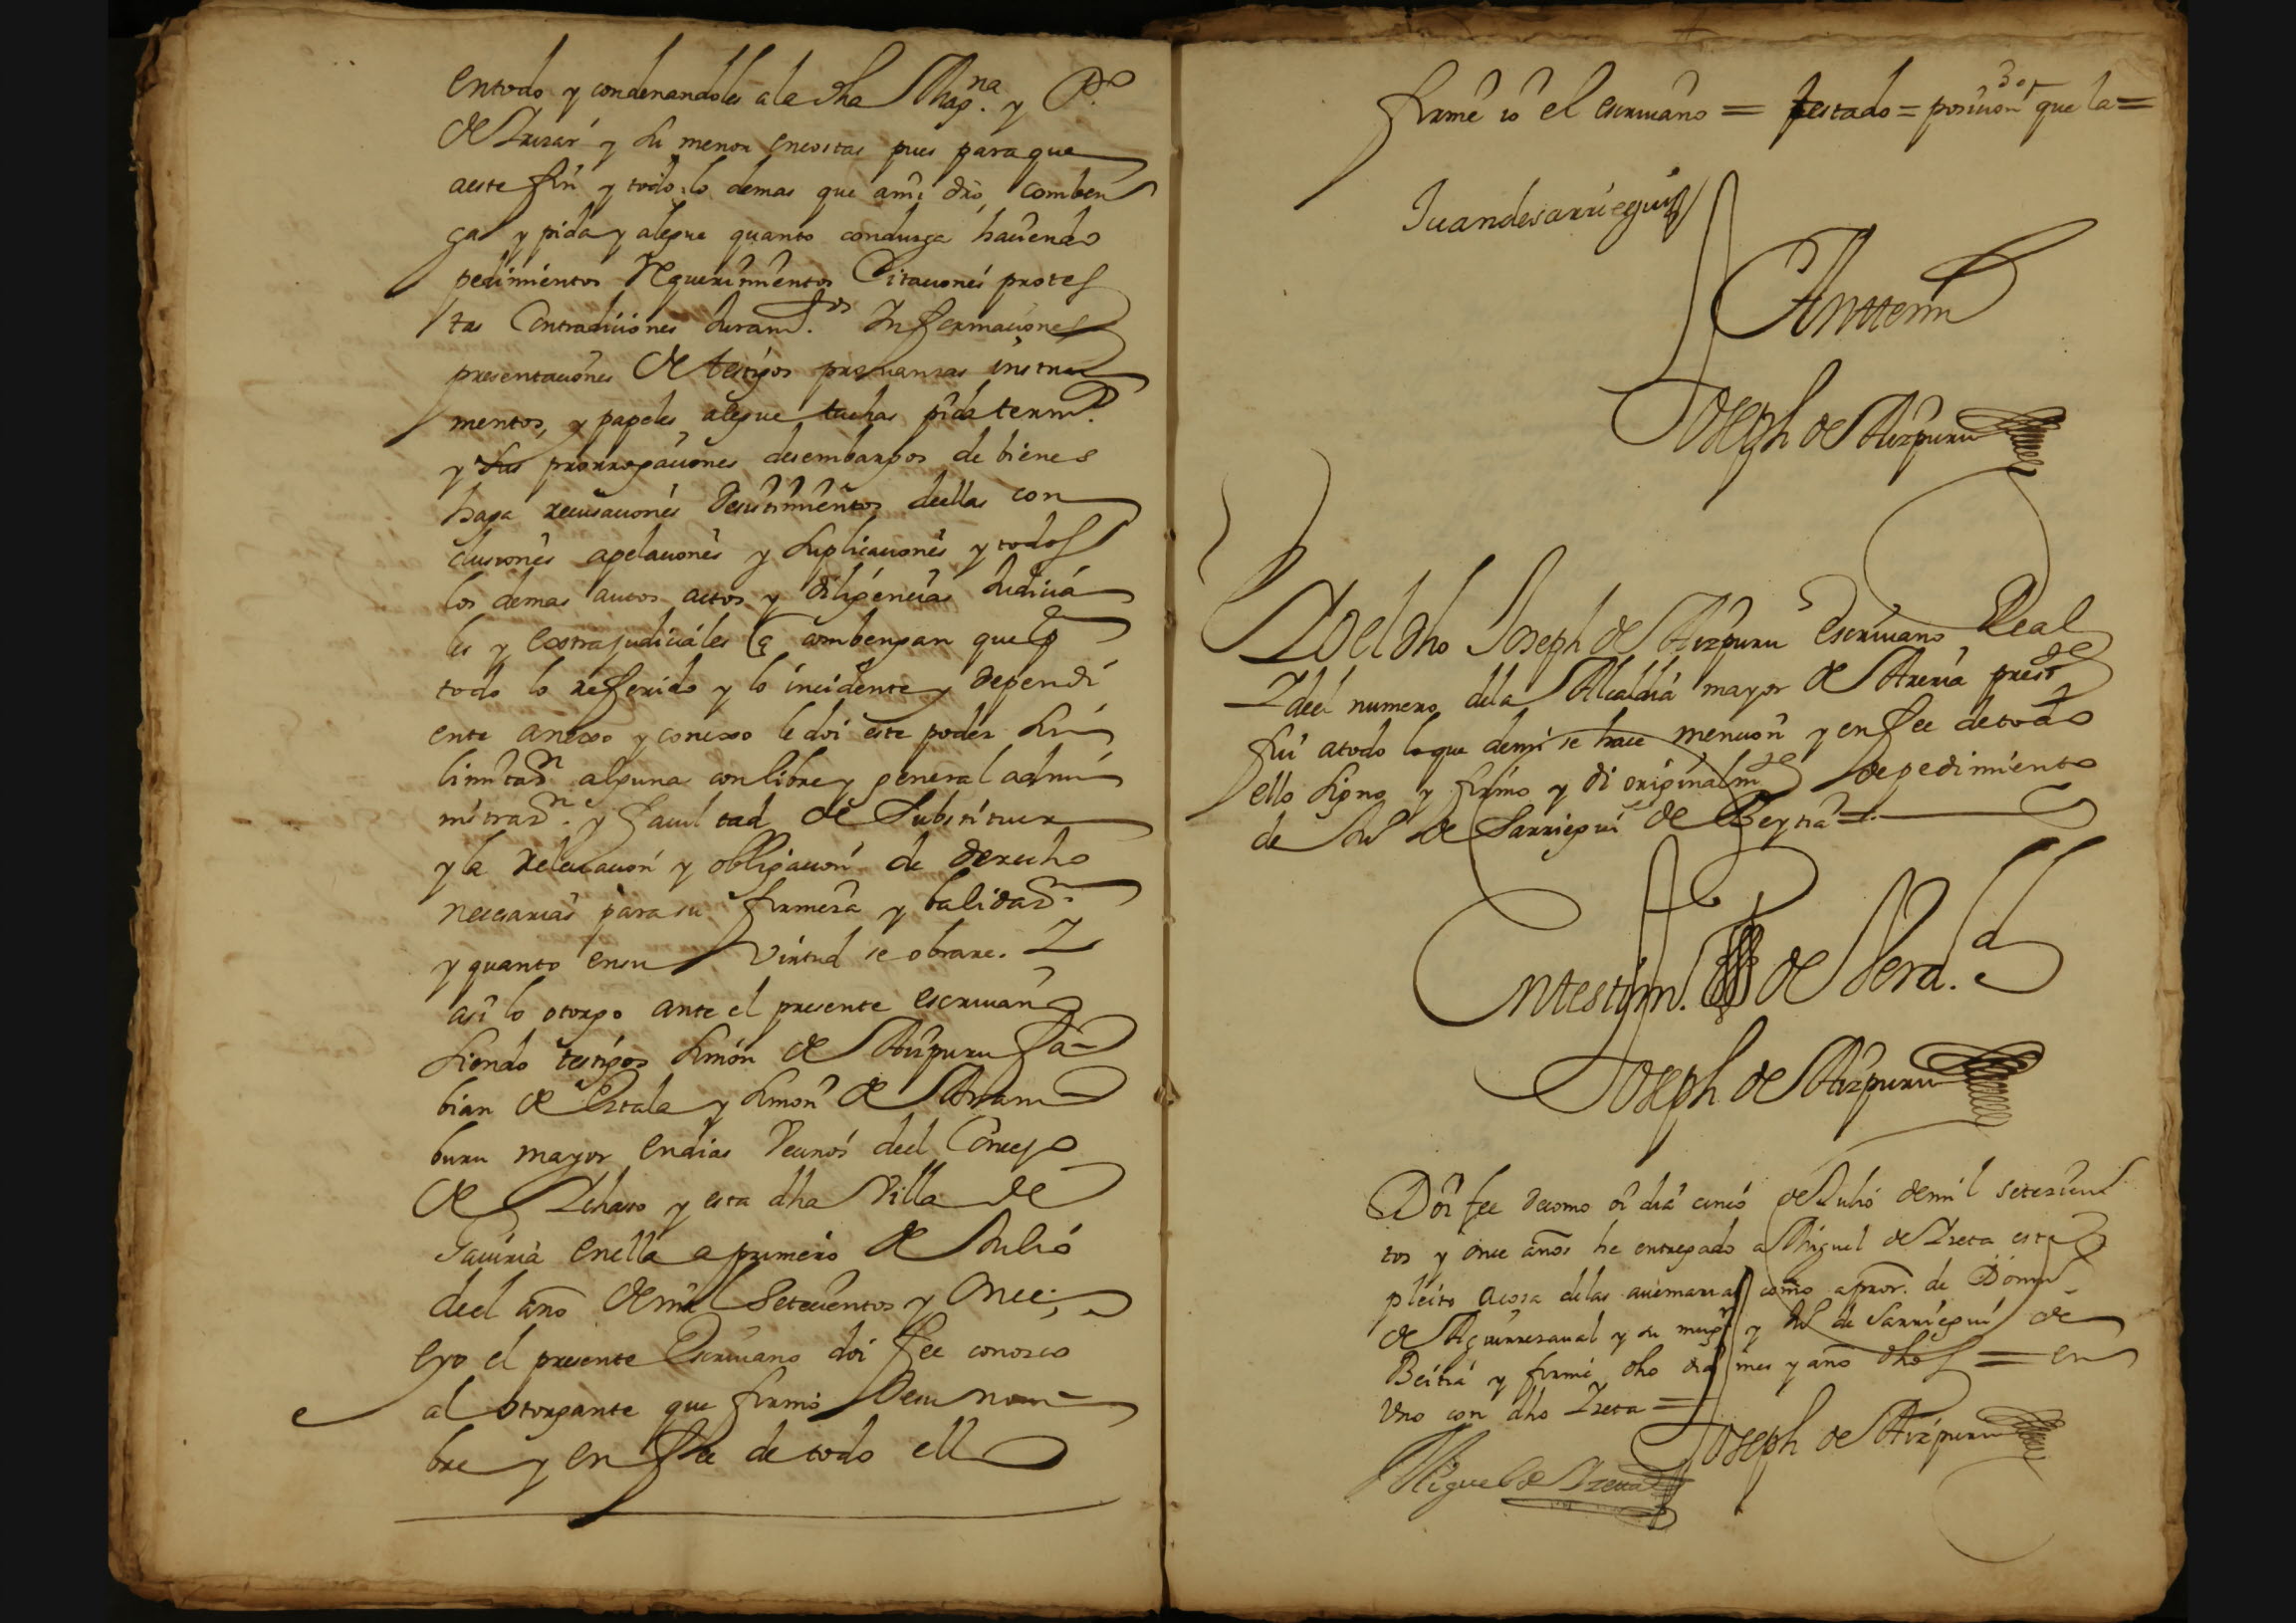 entodo y condenandoles ala dha Mag.na y P.o
de Irizar y su menor encostas pues paraque
aeste fin y todo lo demas que ami dro, comben
ga y pida y alegue quanto conduzga haciendo
pedimientos Requerimientos Citaciones protes
tas Contradiciones Juram.tos Informaciones
presentaciones de testigos provanzas instru
mentos, y papeles alegue tachas pida term.o
y sus prorrogaciones desembargos de bienes
haga recusaciones Desistimientos dellas con
clusiones apelaciones y suplicaciones y todos
los demas autos actos y diligencias Judicia
les y extrajudiciales q combengan que p
todo lo referido y lo incidente y dependi
ente anexo y conexo le doi este poder sin
limitaon alguna con libre y general admi
nistraon y facultad de Substituir
y la relevacion y obligacion de derecho
necesarias para su firmeza y balidaon
y quanto ensu Virtud se obrare. Y
asi lo otorgo ante el presente escrivano
siendo testigos Simon de Aizpuru fa
bian de Estala y Simon de Aram
buru mayor endias Vecinos deel Concejo
de Ichaso y esta dha Villa de
Gaviria enella a primero de Julio
deel año demil Setecientos y Once;
e yo el presente Escrivano doi fee conozco
al otorgante que firmo Desu nom
bre y en fee de todo ello
firme io el escrivano = testado = posicion que la =
301
Juandesarriegui
Anttemi
Joseph de Aizpuru
Yo el dho Joseph de Aizpuru escrivano Real
Y deel numero dela Alcaldia mayor de Areria presete
fui atodo loque demi se hace mencion y en fee detodo
ello signo y firmo y di originalmte de pedimiento
de Jul de Sarriegui de Beytia =
Entestim. de Verd.d
Joseph de Aizpuru
Doi fee decomo oi dia cinco de Julio demil setecien
tos y once años he entregado a Miguel de Izeta este
pleito acosa delas avemarias como aproor. de Domin
de Aguirrezaval y su muger y Jul de Sarriegui de
Beitia y firme dho dia mes y año dhos = en
Uno con dho Izeta =
Joseph de Aizpuru
Miguel de Izeta